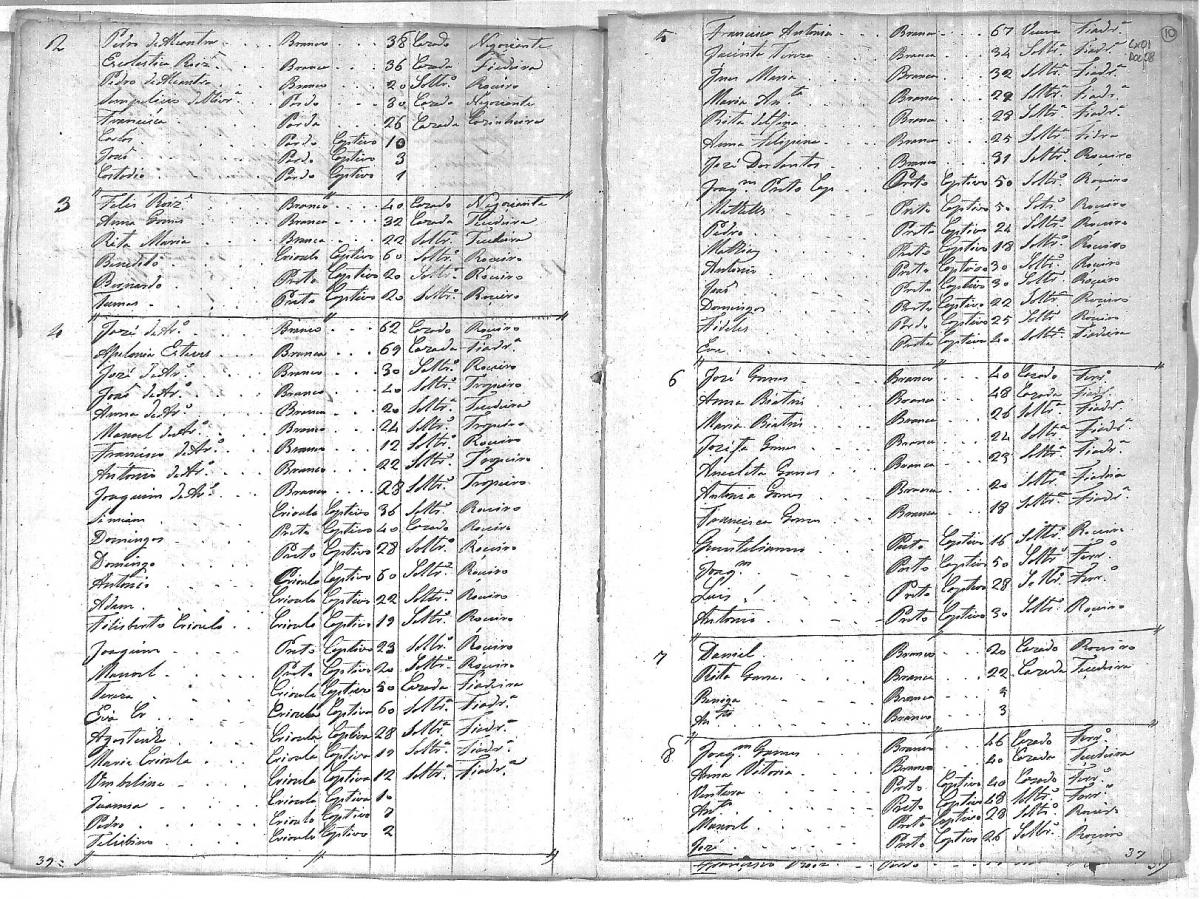 2 Pedro de Alcantra Branco 38 Cazado Negociante
Escolastica Roiz Branca 36 Cazada Fiadeira
Pedro de Alcantra Branco 20 Soltrº Roceiro
Pardo 30 Cazado Negociante
Francisca Parda 26 Cazada Cozinheira
Pardo Captivo 10
José Pardo Captivo 3
Custodio Pardo Captivo 1
3 Felis Roiz Branco 40 Cazado Negociante
Anna Gomes Branca 32 Cazada Tecedeira
Rita Maria Branca 22 Soltrª Tecedeira
Benedito Crioulo Captivo 60 Soltrº Roceiro
Bernardo Preto Captivo 20 Soltrº Roceiro
Preto Captivo 20 Soltrº Roceiro
4 José de Arº Branco 62 Cazado Roceiro
Apolonia Esteves Branca 69 Cazada Fiadrª
José de Arº Branco 30 Soltrº Roceiro
João de Arº Branco 40 Soltrº Tropeiro
Anna de Arº Branca 20 Soltrª Tecedeira
Manoel de Arº Branco 24 Soltrº Tropeiro
Francisco de Arº Branco 12 Soltrº Roceiro
Antonio de Arº Branco 22 Soltrº Tropeiro
Joaquim de Arº Branco 28 Soltrº Tropeiro
Simiam Crioulo Captivo 36 Soltrº Roceiro
Domingos Preto Captivo 40 Cazado Roceiro
Domingo Preto Captivo 28 Soltrº Roceiro
Antonio Crioulo Captivo 60 Soltrº Roceiro
Adam Crioulo Captivo 22 Soltrº Roceiro
Filisberto Crioulo Crioulo Captivo 19 Soltrº Roceiro
Joaquim Preto Captivo 23 Soltrº Roceiro
Manoel Preto Captivo 20 Soltrº Roceiro
Tereza Crioula Captiva 50 Cazada Fiadeira
Eva Cr Crioula Captiva 60 Soltrª Fiadrª
Agostinha Crioula Captiva 28 Soltrª Fiadrª
Maria Crioula Crioula Captiva 19 Soltrª Fiadrª
Umbelina Crioula Captiva 12 Soltrª Fiadrª
Joanna Crioula Captiva 10
Pedro Crioulo Captivo 7
Crioulo Captivo 2
39
10
Cx01
Doc.08
5 Francisca Antonia Branca 67 Viuva Fiadrª
Jacinta Branca 34 Soltrª Fiadrª
Ignes Maria Branca 32 Soltrª Fiadrª
Maria Anta Branca 29 Soltrª Fiadrª
Rita Branca 23 Soltrª Fiadrª
Anna Felizarda Branca 25 Soltrª Fidra
José Dos Santos Branco 31 Soltrº Roceiro
Joaqm Preto Cap Preto Captivo 50 Soltrº Roceiro
Matheus Preto Captivo 50 Soltrº Roceiro
Pedro Preto Captivo 24 Soltrº Roceiro
Mathias Preto Captivo 18 Soltrº Roceiro
Antonio Preto Captivo 30 Soltrº Roceiro
João Preto Captivo 30 Soltrº Roceiro
Domingos Preto Captivo 22 Soltrº Roceiro
Fidelis Pardo Captivo 25 Soltrº Roceiro
Eva Preta Captiva 40 Soltrª Fiadeira
6 José Gomes Branco 40 Cazado Ferrº
Anna Beatris Branca 48 Cazada Fiadrª
Maria Beatris Branca 26 Soltrª Fiadrª
Jozefa Gomes Branca 24 Soltrª Fiadrª
Anacleta Gomes Branca 23 Soltrª Fiadrª
Antonia Gomes Branca 20 Soltrª Fiadrª
Francisca Gomes Branca 18 Soltrª Fiadrª
Preto Captivo 16 Soltrº Roceiro
Joaqm Preto Captivo 50 Soltrº Ferrº
Luis Preto Captivo 28 Soltrº Ferrº
Antonio Preto Captivo 30 Soltrº Roceiro
7 Daniel Branco 20 Cazado Roceiro
Rita Gomes Branca 22 Cazada Tecedeira
Branca
Anto Branco 3
8 Joaqm Gomes Branco 46 Cazado Ferrº
Anna Vitoria Branca 40 Cazada Tecedeira
Ventura Preto Captivo 40 Cazado Ferrº
Anto Preto Captivo 48 Soltrº Ferrº
Manoel Preto Captivo 28 Soltrº Roceiro
José Preto Captivo 26 Soltrº Roceiro
37